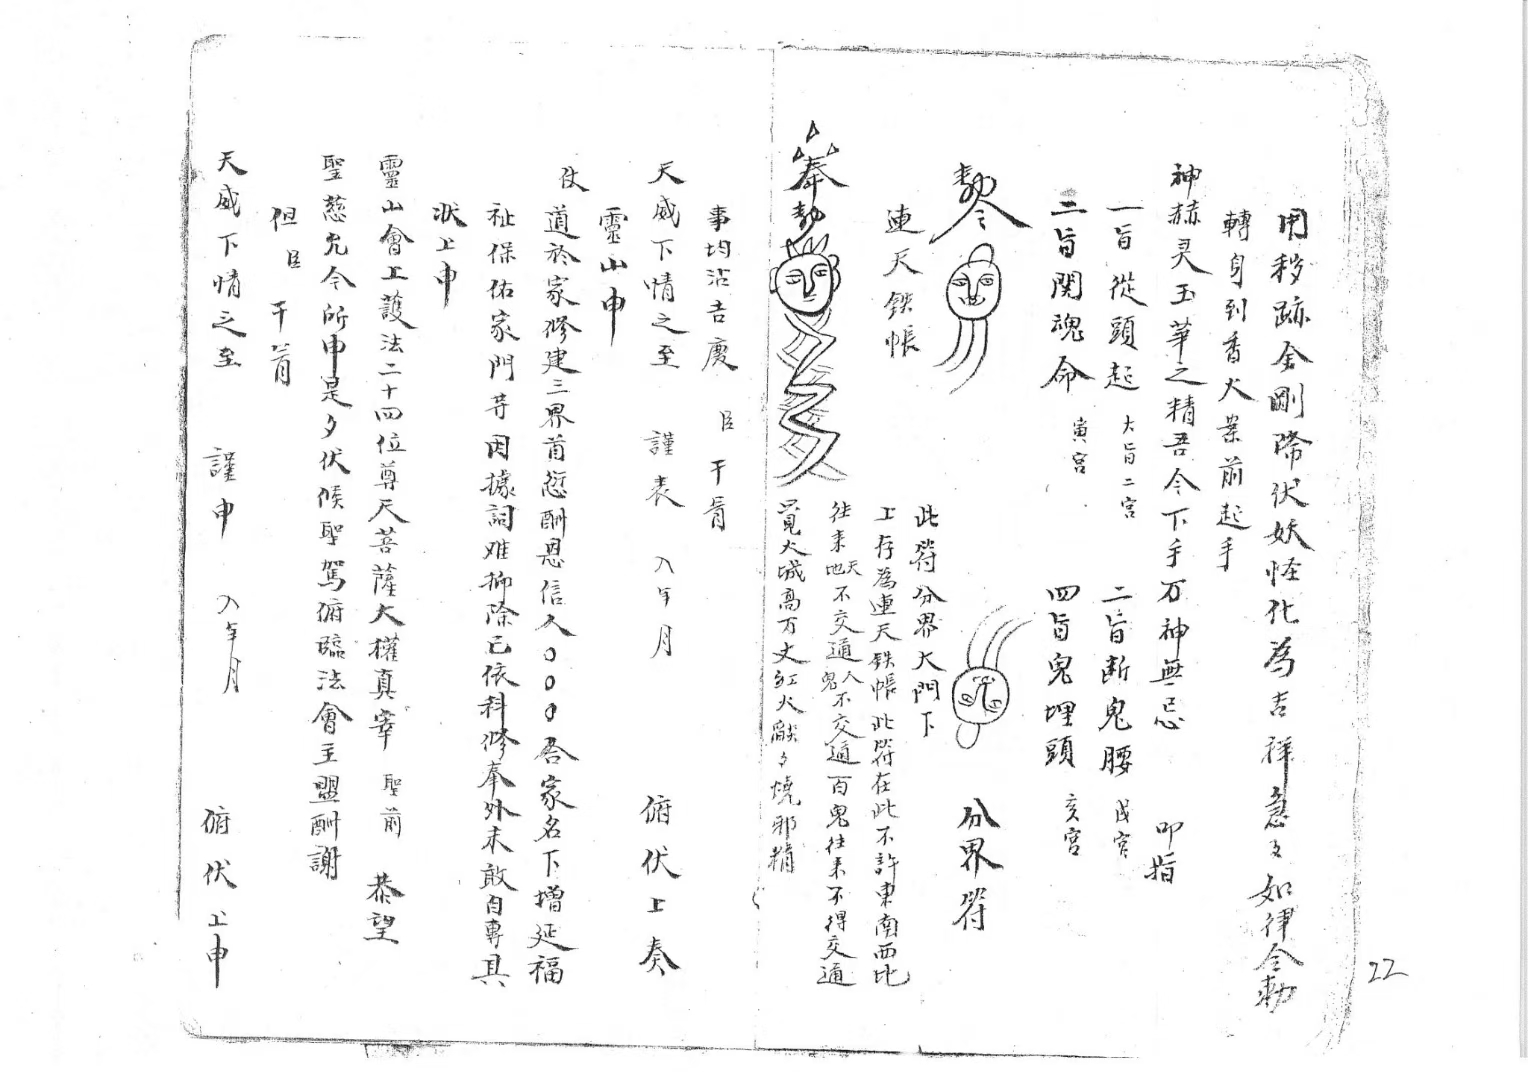 用秽跡金剛降伏妖怪化為吉祥急々如律令勅
轉身到香火案前起手
神赫灵玉華之精吾今下手万神無忌 叩指
一旨從頭起 大旨二宮 二旨断鬼腰 戌宮
二旨関魂命 寅宮 四旨鬼埋頭 亥宮
勅令 分界符
連天鉄帳
此符分界大門下
上存為連天鉄帳此符在此不許東南西北
往来天地不交通人鬼不交通百鬼往来不得交通
覓火城高万丈紅火燄々燒邪精
奉勅
事均沾吉慶 臣 干冐
天威下情之至 謹表 入年月 俯伏上奏
靈山申
伏道於家修建三界首愆酬恩信人〇〇〇合家名下增延福
祉保佑家門等因據詞难抑除已依科修奉外未敢自專具
狀上申
靈山會上護法二十四位尊天菩薩大權真宰 聖前 恭望
聖慈允令所申是夕伏候聖駕俯臨法會主盟酬謝
但臣 干冐
天威下情之至 謹申 入年月 俯伏上申
22